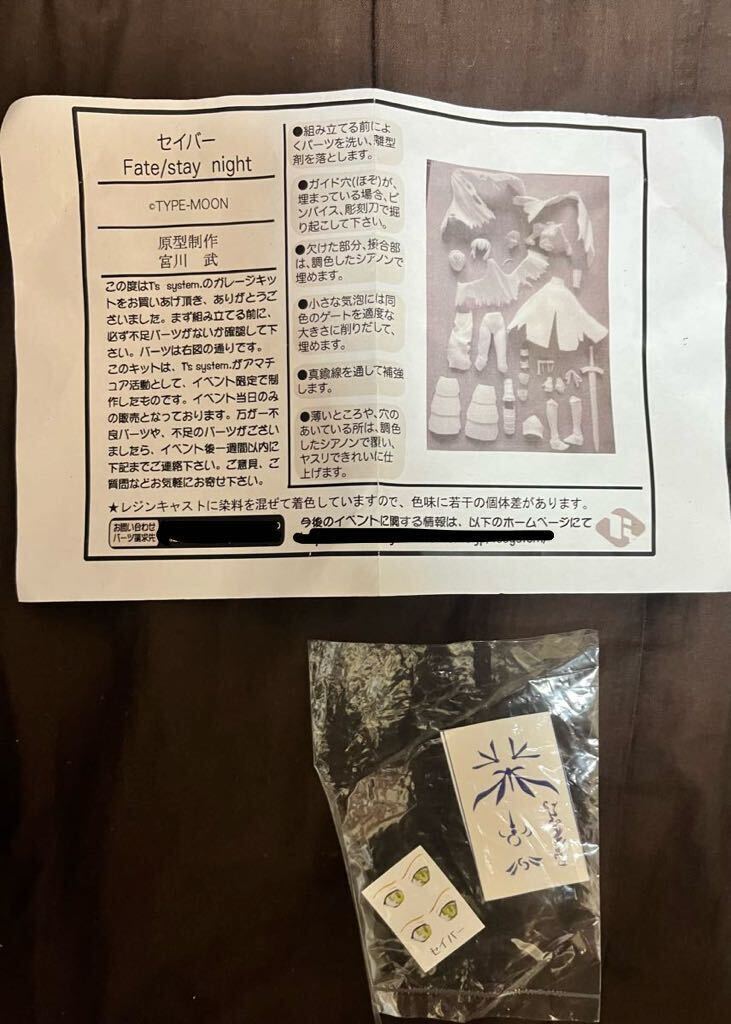 セイバー
Fate/stay night
©TYPE-MOON
原型制作
宮川　武
この度はT's system.のガレージキッ
トをお買いあげ頂き、ありがとうご
ざいました。まず組み立てる前に、
必ず不足パーツがないか確認して下
さい。パーツは右図の通りです。
このキットは、T's system.がアマチ
ュア活動として、イベント限定で制
作したものです。イベント当日のみ
の販売となっております。万が一不
良パーツや、不足のパーツがござい
ましたら、イベント後一週間以内に
下記までご連絡下さい。ご意見、ご
質問などお気軽にお寄せ下さい。
●組み立てる前によ
くパーツを洗い、離型
剤を落とします。
●ガイド穴((ほぞ)が、
埋まっている場合、ピ
ンバイス、彫刻刀で掘
り起こして下さい。
●欠けた部分、接合部
は、調色したシアノンで
埋めます。
●小さな気泡には同
色のゲートを適度な
大きさに削りだして、
埋めます。
●真鍮線を通して補強
します。
●薄いところや、穴の
あいている所は、調色
したシアノンで覆い、
ヤスリできれいに仕
上げます。
★レジンキャストに染料を混ぜて着色していますので、色味に若干の個体差があります。
お問い合わせ
パーツ請求先
今後のイベントに関する情報は、以下のホームページにて
セイバー